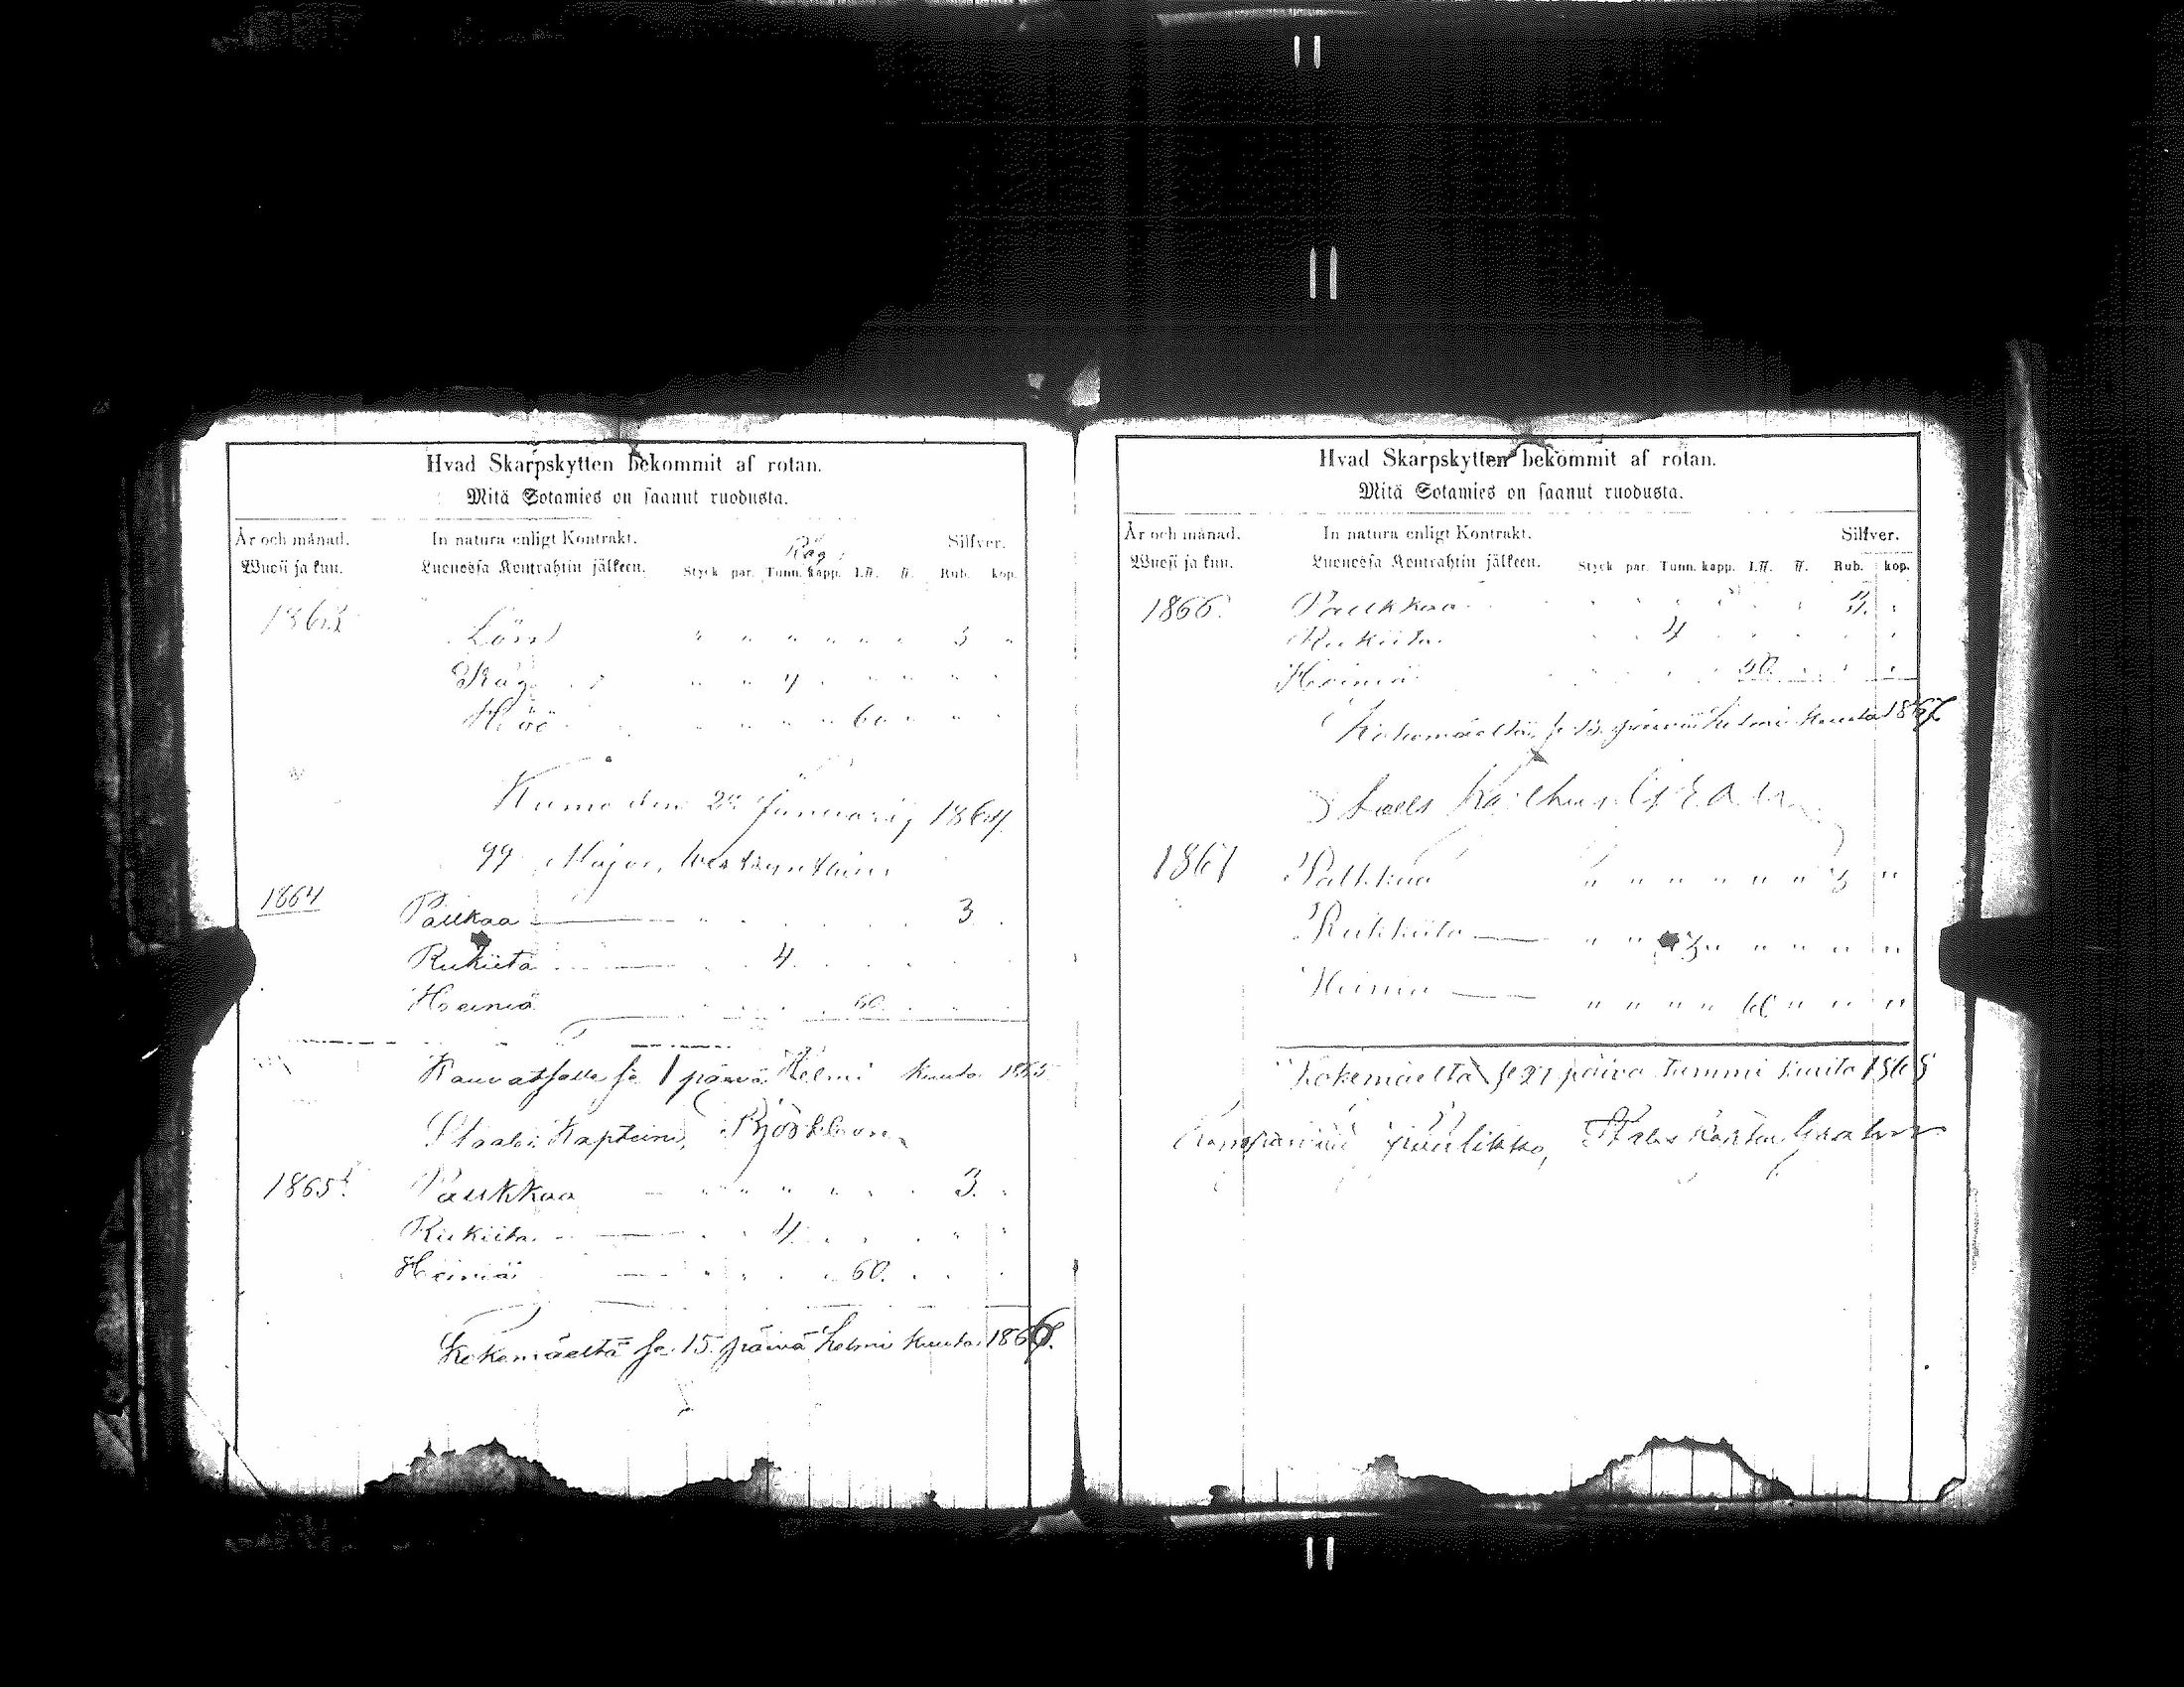 Hvad Skarpskytten bekommit af rotan.
Mitä Sotamies on saanut ruodusta.
År och månad. In natura enligt Kontrakt. Råg Silfver.
Wuosi ja kuu. Luonossa Kontrahtin jälkeen. Styck par. Tunn. kapp. L℔. ℔. Rub. kop.
1863 Lön " " " " " " 3 "
Råg " " 4 " " " " "
Höö " " " " 60 " " "
Kumo den Januarij 1864.
Major,
1864 Palkkaa 3
Rukiita 4
Heiniä 60
Kauvatsalle se 1 päivä Helmi kuuta 1865
Staabi Kapteini, Björklund
1865 Palkkaa 3.
Rukiita 4
Heiniä 60.
Kokemäeltä se 15 päivä Helmi kuuta 1866.
Hvad Skarpskytten bekommit af rotan.
Mitä Sotamies on saanut ruodusta.
År och månad. In natura enligt Kontrakt. Silfver.
Wuosi ja kuu. Luonossa Kontrahtin jälkeen. Styck par. Tunn. kapp. L℔. ℔. Rub. kop.
1866. Palkkaa 3.
Rukiita 4
Heiniä
Kokemäeltä, se 15 päivä Helmi kuuta 1867
1867 Palkkaa " " " " " " 3 "
Rukkiita " " 3 " " " " "
Heiniä " " " " 60 " " " "
Kokemäeltä se 27 päivä Tammi kuuta 1868
Komppanian päälikkö,